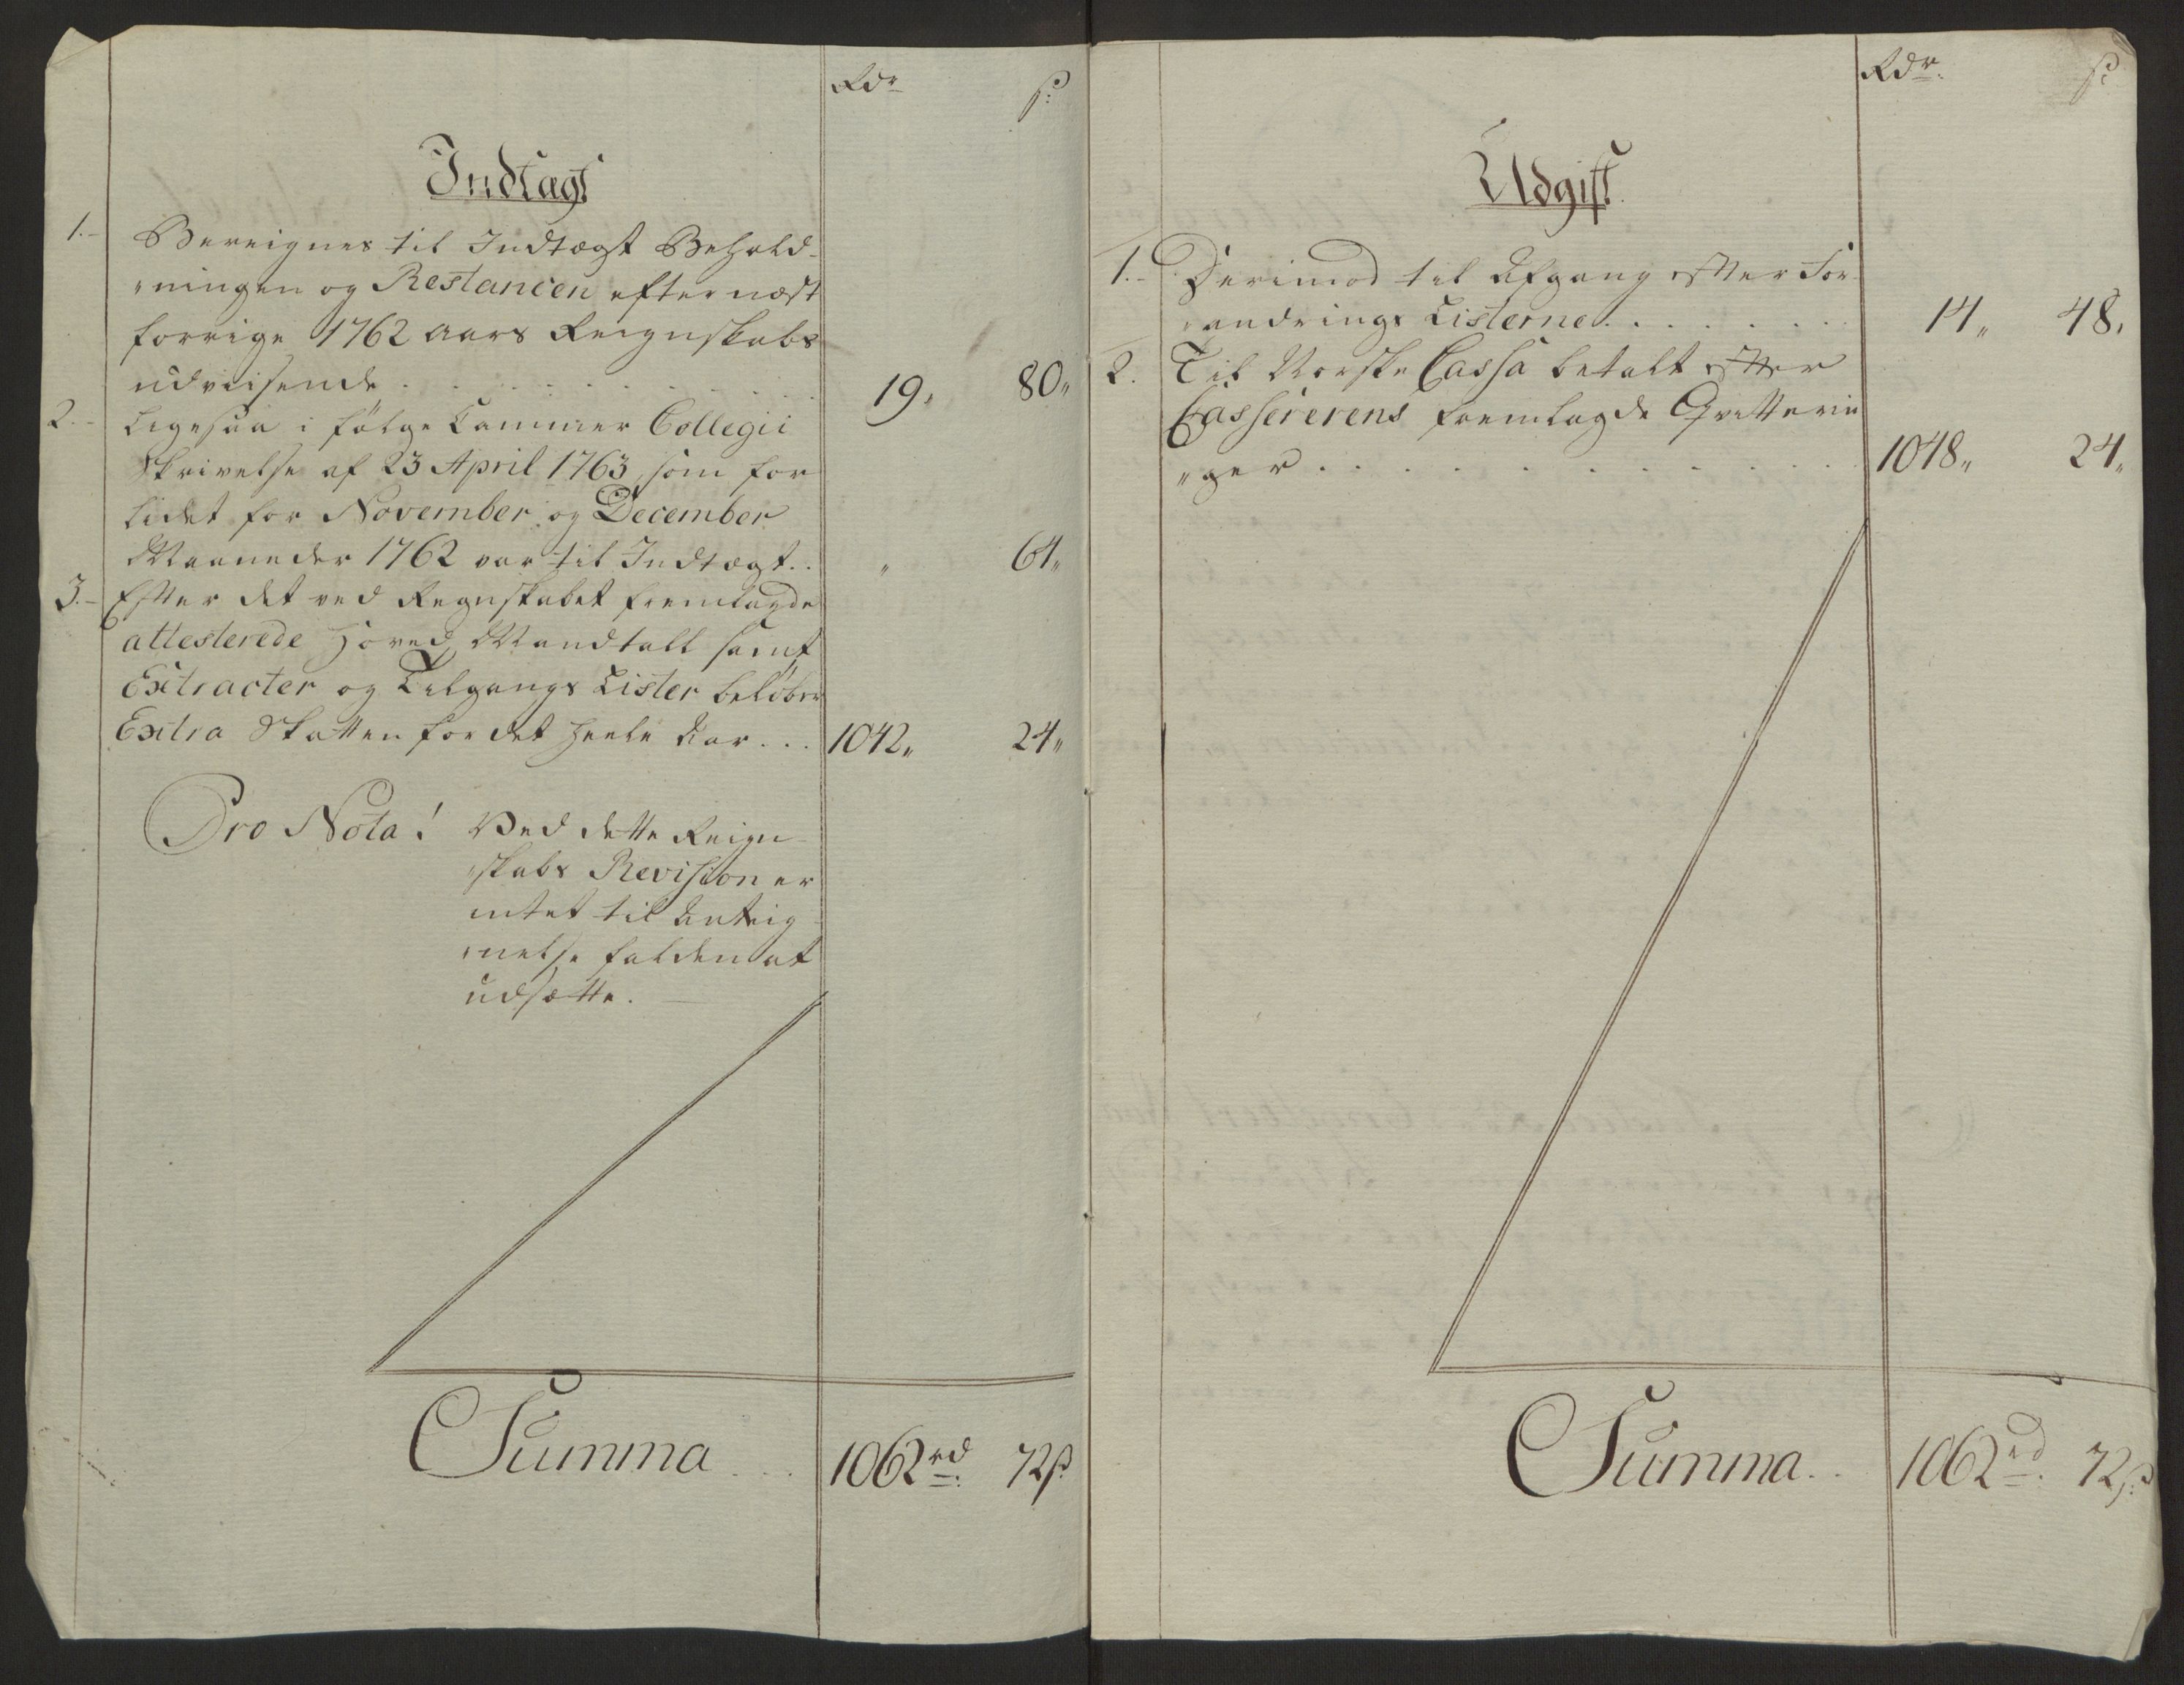 Rdr ß:
Indtægt
1.- Bereignes til Indtægt Behold-
"ningen og Restancen efter næst
forrige 1762 aars Reignskabs
udviisende . . . . . . . 19„ 80„
2.- Ligesaa i følge Cammer Collegii
Skrivelse af 23 April 1763, som for
lidet for November og December
Maaneder 1762 var til Indtægt . . „ 64„
3.- Efter det ved Regnskabet fremlagde
attesterede Hoved Mandtall samt
Extracter og Tilgangs Lister beløber
Extra Skatten for det heele Aar . . . 1042„ 24„
Pro Nota! Ved dette Reign-
"skabs Revision er
intet til Anteig-
"nelse falden at
udsætte.
Summa . . . 1062 rd 72 ß
Rdr. ß:
Udgift
1.- Derimod til Afgang efter For-
"andrings Listerne . . . . . . . 14„ 48„
2. Til Norske Cassa betalt efter
Cassererens fremlagde Qvitterin
"ger . . . . . . . . 1048„ 24„
Summa . . 1062 rd. 72 ß